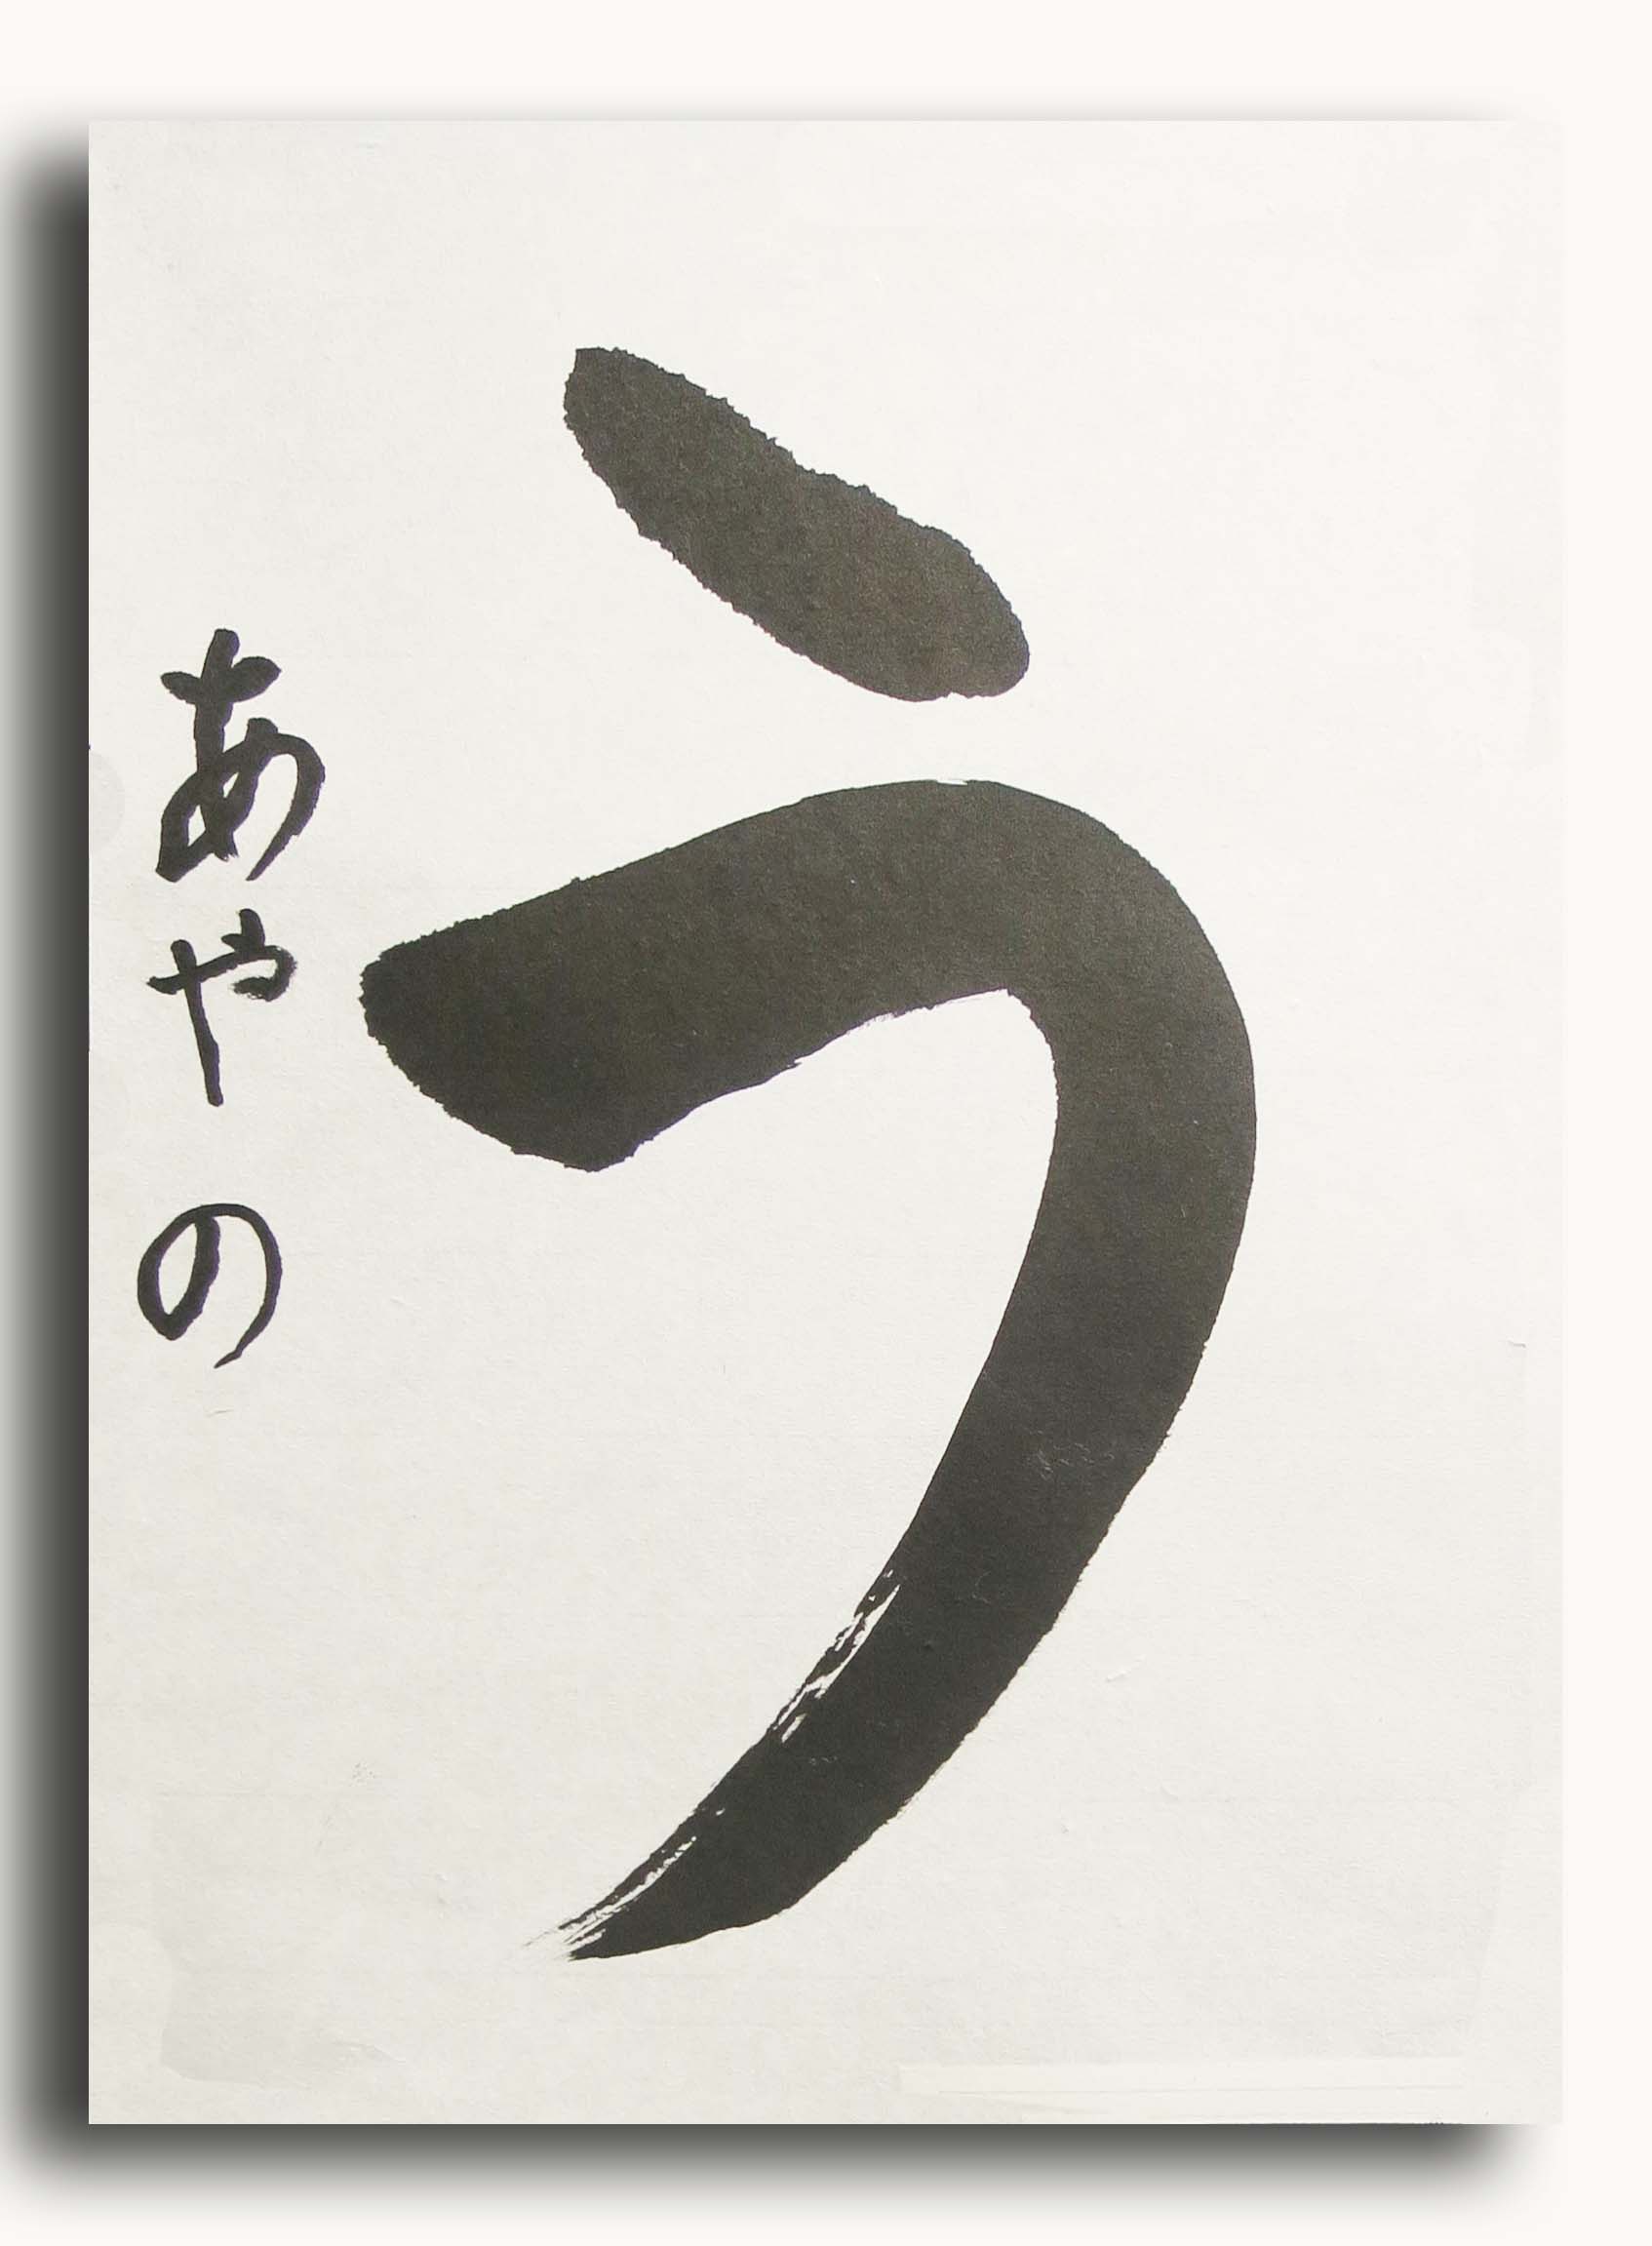 う
あやの